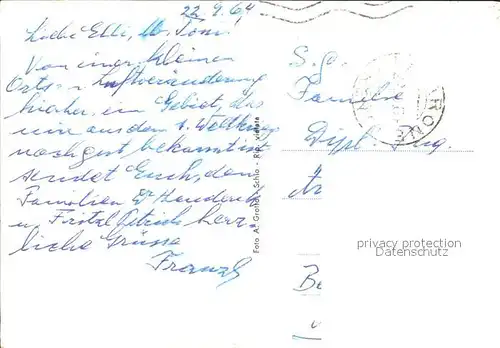 22.9.64
Liebe Elli, lb. Toni!
Von einer kleinen
Orts- u. Luftveränderung
hierher, ein Gebiet, das
mir aus dem 1. Weltkrieg
noch gut bekannt ist
sendet Euch, den
Familien
u. Fritzl herz-
liche Grüsse
Franzl
Foto A. Groffi - Schio - Rip. vietata
S. g.
Familie
Dipl. Ing.
privacy protection
Datenschutz